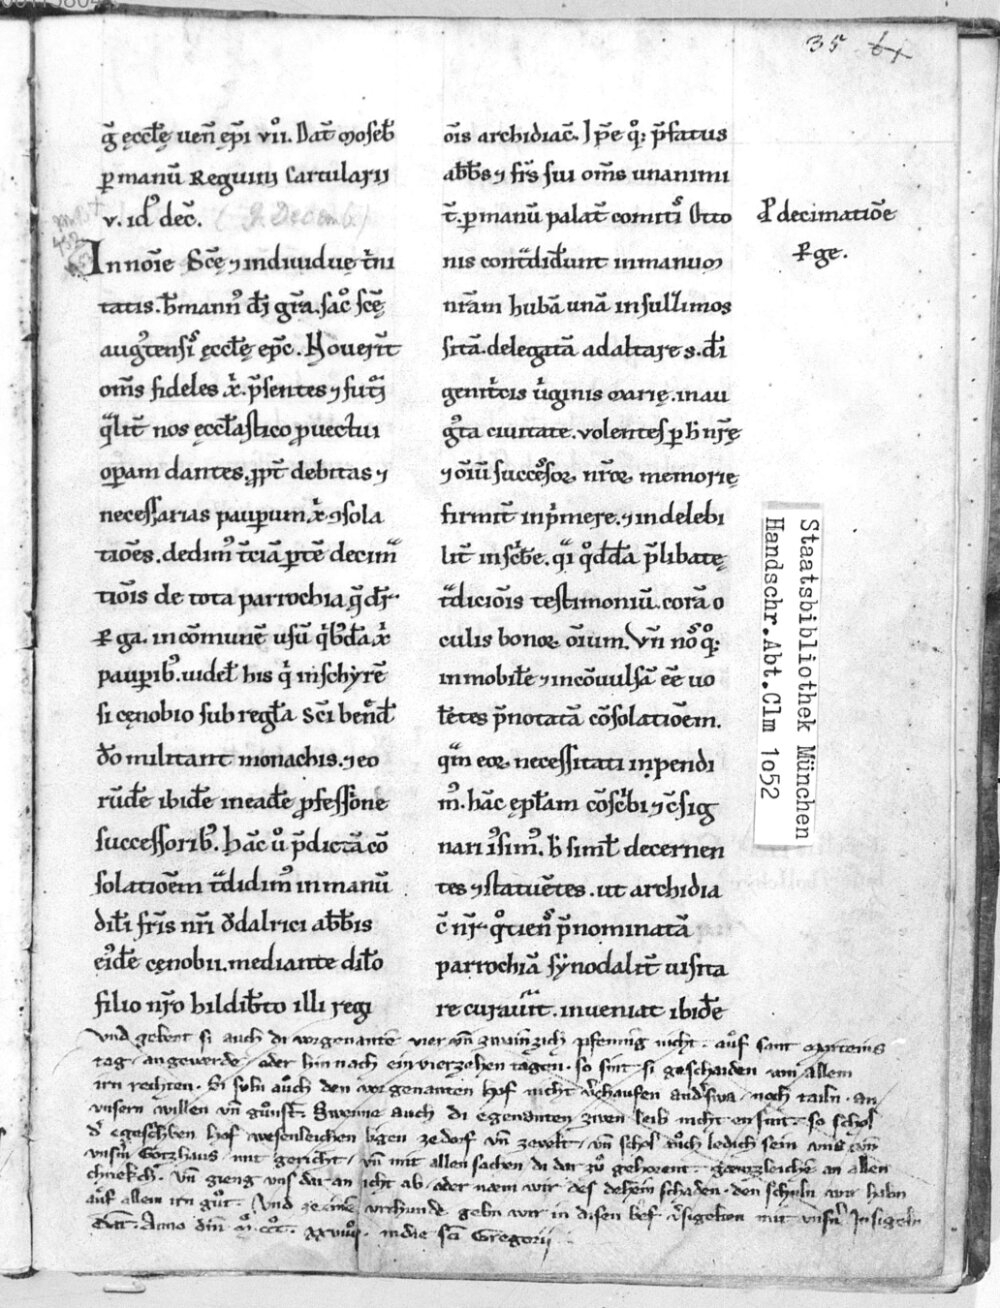 35
g̃ ęccł̃ę uen̄ ęp̄i vꝰi. Dat̄ moseb̄
ꝑ manū Reguuiɲ Cartularii
v. id᷒ dec̄.
In noı̄e Sc̄ę ⁊ indiuiduę t̄ni
tatis. h̄mannꝰ dī gr̄a. sac̄ sc̄ę
augꝰtensis ęccł̄ę ep̄c. Nouerit̄
om̄s fideles x̄. p̄sentes ⁊ futi
qͣlit̄ nos ęccł̄astico prouectui
oꝑam dantes. ꝓpt̄ debitas ⁊
necessarias pauꝑum x̄ ꝯsola
tiōes. dedimꝰ t̄ciā ꝑtē decim
tiōis de tota parrochia q̄ dr̄
Ꝑga. in cōmunē usū qͥbꝰdā x̄
pauꝑibꝰ. uidel̄ his qͥ in schyrē
si cęnobio sub regl̄a Sc̄i bend̄
d̄o militant monachis. ⁊ eo
rūdē ibidē in eadē ꝓfessiōne
successoribꝰ. hāc ū p̄dictā cō
solatiōem tͣdidimꝰ in manū
dil̄i fr̄is nr̄i Ǒdalrici abb̄is
eiꝰdē cęnobii. mediante dil̄o
filio nr̄o hildib̄to illi regi
ōis archidiac̄. Ipe q̄: p̄fatus
abb̄s ⁊ fr̄s sui om̄s unanimi
t̄. ꝑ manū palat̄ comitis Otto
nis contͣdid̄unt in manum
nr̄am hubā unā in sullimos
sitā. delegatā ad altare s. dī
genit̄cis uͥginis marię. in au
gꝰta ciuitate. volentes ꝑ h̄ nr̄ę
⁊ oīū successoꝝ nr̄oꝝ memorię
firmit̄ inpͥmere. ⁊ indelebi
lit̄ insc̄be. qͣi qͦddā p̄libatę
tͣdiciōis testimoniū. corā o
culis bonoꝝ oīum. Vn̄ nos q̄:
inmobilē ⁊ incōuulsā eē uo
lētes p̄notatā cōsolatiōem.
qͣm eoꝝ necessitati inpendi
mꝰ. hāc ępl̄am cōsc̄bi ⁊ c̄sig
nari iꝰsimꝰ. h̄ simł decernen
tes ⁊ statuētes. ut archidia
c̄ nr̄ qͦtiens p̄nominatā
parrochiā synodalit̄ uisita
re curauit̄. inueniat ibidē
ꝓ decimatiōe
Ꝑge.
Staatsbibliothek München
Handschr.Abt.Clm 1o52
vnd gebent si auch di vorgenanten vier vn̄ zwainzich pfenning nicht. auf sant Marteins
tag / angewerde / oder hin nach ein vierzehen tagen. so sint si geschaiden von allem
irn rechten. Si suln auch den vorgenanten hof nicht v̄chaufen anderswa / noch tailn. an
vnsern willen vn̄ gunst. Swenne auch di egenanten zwen leib nicht ensint. so schol
d̄ egeschriben hof wesenleichen ligen ze dorf vn̄ ze velt / vn̄ schol auch ledich sein vns vn̄
vnsm̄ Gotzhaus / mit gericht / vn̄ mit allen sachen di dar zů gehorent. gaenzleichē an allen
chriekch. Vn̄ gieng vns dar an icht ab / oder naem wir des dehein schaden. den schuln wir habn
auf allem irn gůt. Vnd ze eim̄ vrchunde gebn wir in disen brief v̄sigelten mit vnsm̄ Insigeln
Anno dn̄i Mͦ. cccͦ. xxviiiͦ. in die sc̄i Gregorij